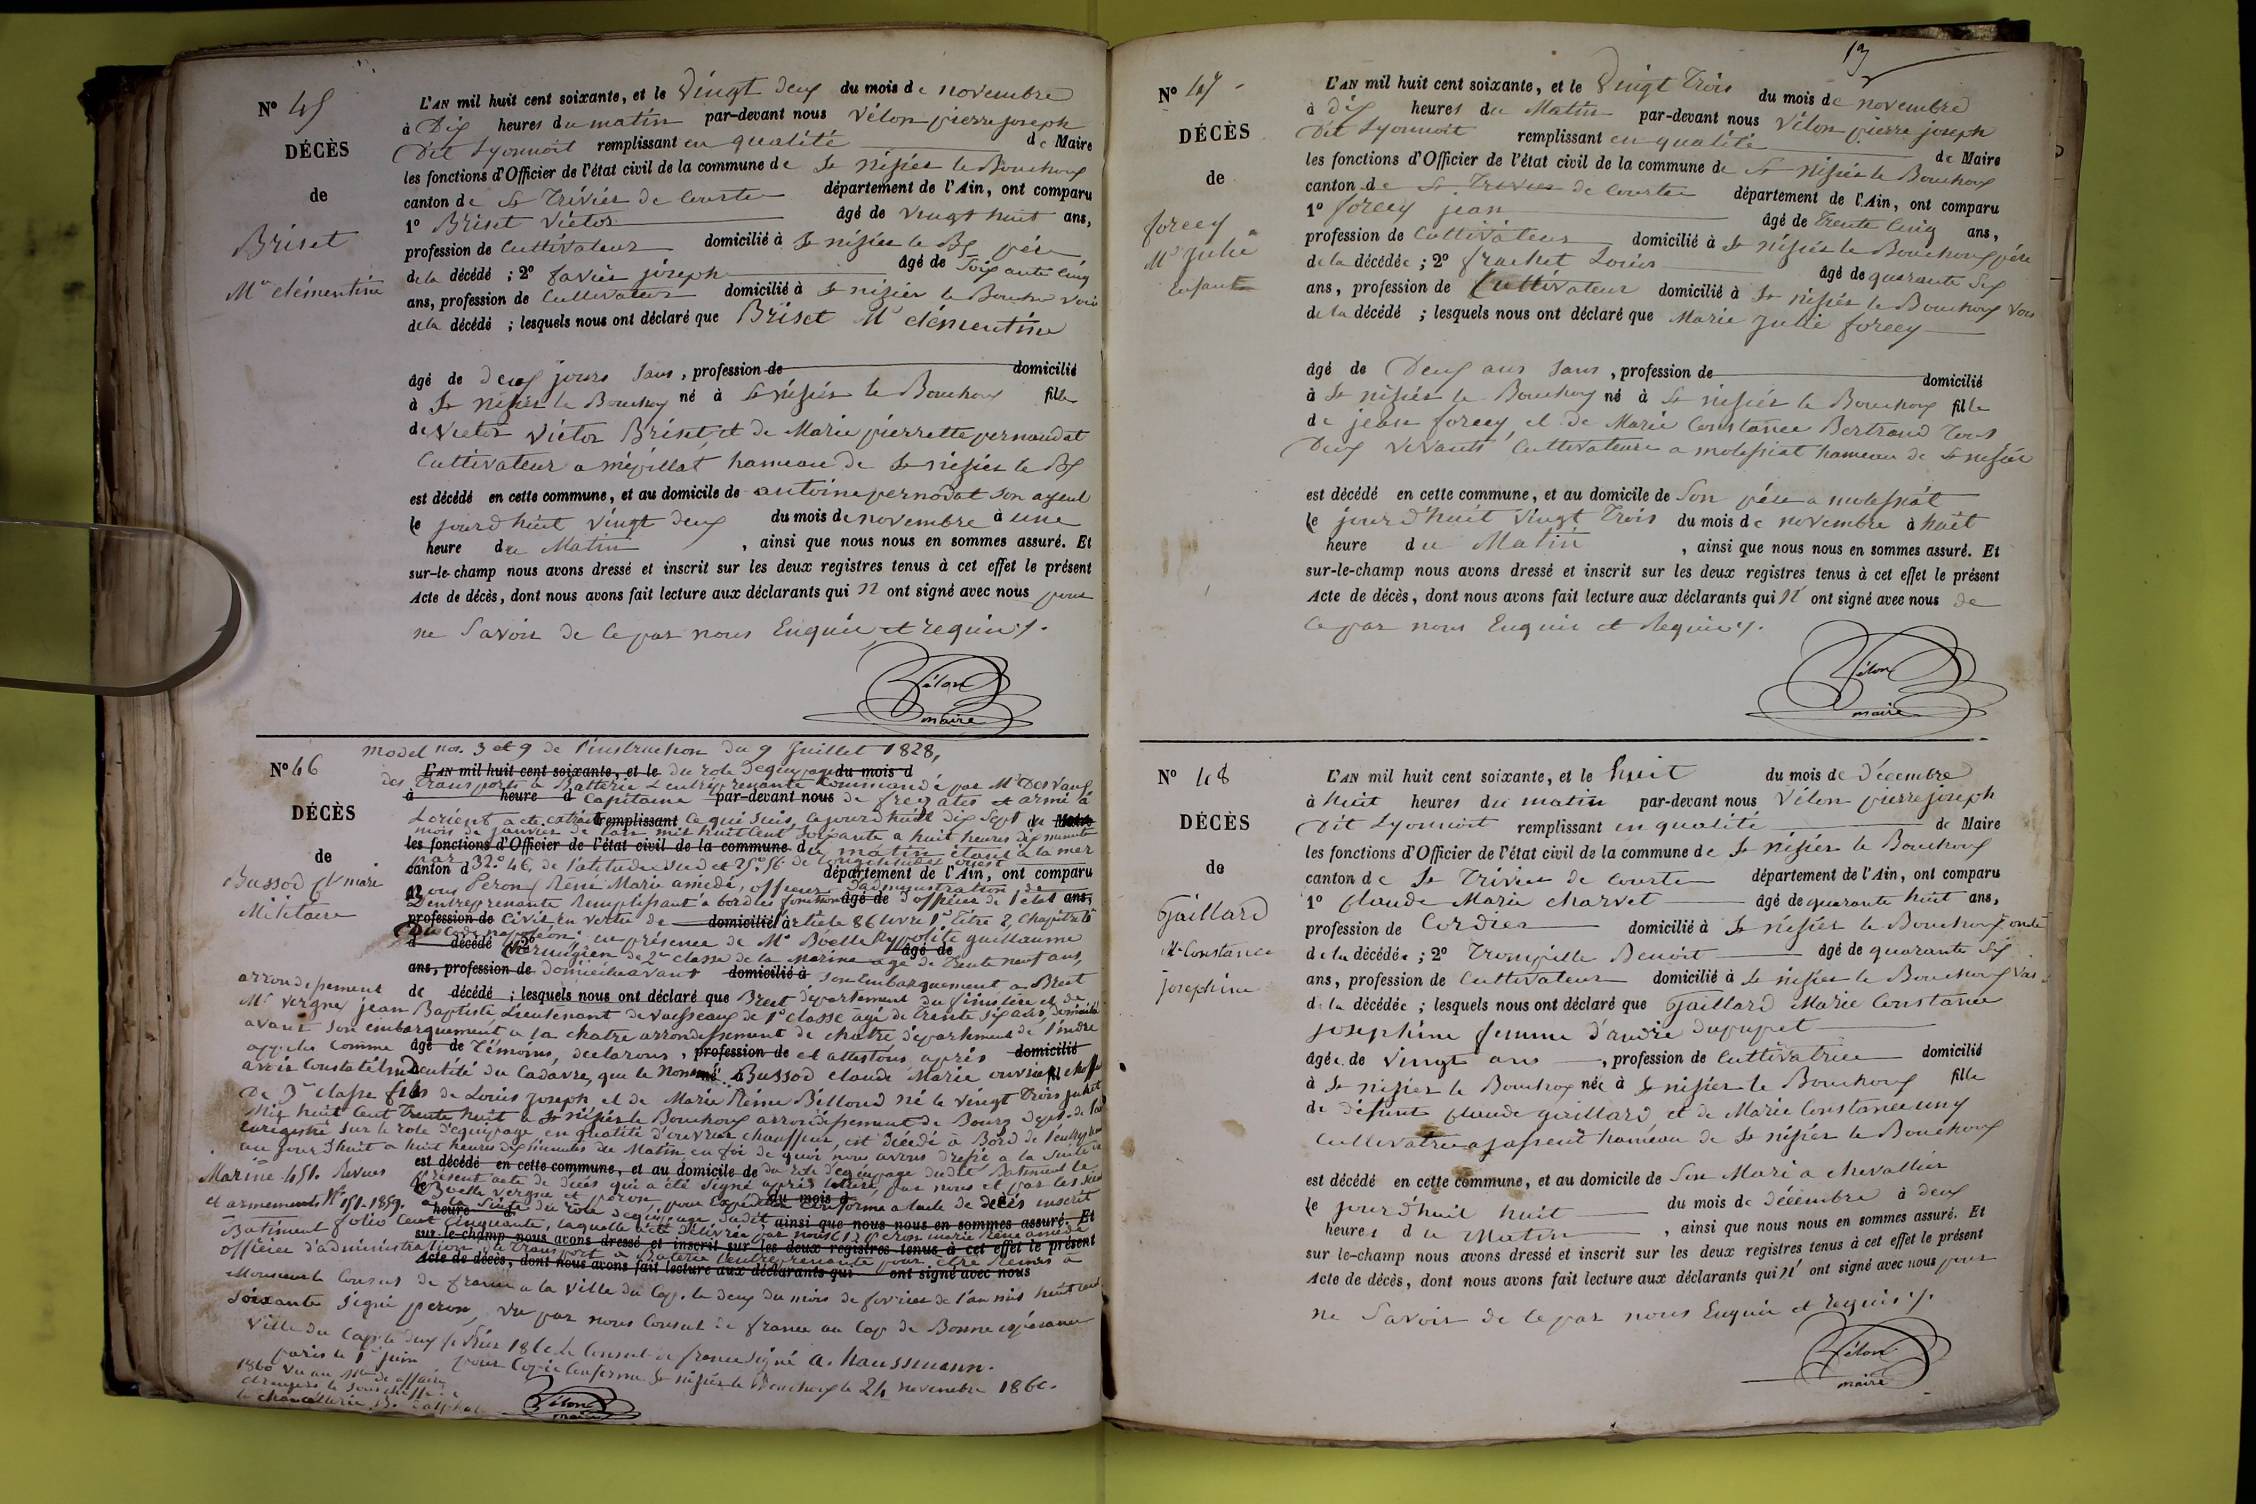 N° 45
DÉCÈS
de
Briset
Mie clémentine
L'AN mil huit cent soixante, et le Vingt deux du mois de novembre
à Dix heures du matin par-devant nous Vélon pierre joseph
Dit Lyonnoit remplissant en qualité de Maire
les fonctions d'Officier de l'état civil de la commune de St nizier le Bouchoux
canton de St Trivier de Courte département de l'Ain, ont comparu
1° Briset Victor âgé de vingt huit ans,
profession de Cultivateur domicilié à St nizier le Bx père
de la décédé ; 2° favier joseph âgé de Soixante cinq
ans, profession de Cultivateur domicilié à St nizier le Boucho voisin
de la décédé ; lesquels nous ont déclaré que Briset Mie clémentine
âgé de deux jours sans , profession de domicilié
à St nizier le Bouchoux né à St nizier le Bouchoux fille
de Victor Victor Briset et de Marie pierrette pernaudat
Cultivateur a mépillat hameau de St nizier le Bx
est décédé en cette commune, et au domicile de antoine pernodat son ayeul
le jourd'huit vingt deux du mois de novembre à une
heure du Matin , ainsi que nous nous en sommes assuré. Et
sur-le-champ nous avons dressé et inscrit sur les deux registres tenus à cet effet le présent
Acte de décès, dont nous avons fait lecture aux déclarants qui n ont signé avec nous pour
ne Savoir de ce par nous Enquie et requis ./.
Vélon
maire
N° 46
DÉCÈS
de
Bussod Cde marie
Militaire
model nos. 3 et 9 de l'instruction du 9 Juillet 1828,
L'AN mil huit cent soixante, et le du role d'equipage du mois d
des Transports à Batterie L'entreprenante Commandé par Mr Desvaux
à heure d Capitaine par-devant nous de fregates et armé à
Lorient acte extrait remplissant ce qui suis, cejourd'huit dix sept du de Maire
mois de janvier de l'an mil huit Cent Soixante a huit heures dix minutes
les fonctions d'Officier de l'état civil de la commune du matin étant à la mer
par 32.° 46, de l'atitude Sud et 25.° 56 de longitudes ouest
canton d département de l'Ain, ont comparu
nous Péron René Marie amédé, officier d'administration de
L'entreprenante Remplissant a bord les fonctions âgé de d'officier de l'état ans,
profession de Civil en vertu de domicilié article 86 livre 1er titre 2 Chapitre
Du Code napoléon. en présence de Mr Boelle hypolite guillaume
d décédé 2° Chirurgien de 2me classe de la Marine âgé de Trente neuf ans,
ans, profession de domicilié avant domicilié à Son Embarquement a Brest
arrondissement de décédé ; lesquels nous ont déclaré que Brest département du finistère et de
Mr Vergne jean Baptiste Lieutenant de vaisseaux de 1re classe âgé de Trente six ans, domicilié
avant Son embarquement a la chatre arrondissement de chatre département de l'indre
appelés Comme âgé de Témoins, declarons , profession de et attestons après domicilié
avoir Constaté l'identité du Cadavre, que le Nommé Bussod claude Marie ouvrier chauffeur
De 3me classe fils de Louis joseph et de Marie Reine Billoud né le vingt Trois juillet
Mil huit Cent Trente huit a St nizier le Bouchoux arrondissement de Bourg dept. de l'ain
enregistré Sur le role d'equipage en qualité d'ouvrier chauffeur, est décédé a Bord de l'entreprenante
au jourd'huit a huit heures dix minutes du Matin en foi de quoi nous avons dressé a la Suite
Marine 451. Revues est décédé en cette commune, et au domicile de du role d'equipage dudit Batiment le
présent acte de décès qui a été Signé après lecture par nous et par les Srs
et armements No 151-1859. le Boelle Vergne et péron, pour Expédition du mois d Conforme a l'acte de décès inscrit
heure d a la Suite du role d'equipage dudit ainsi que nous nous en sommes assuré. Et
Batiment folio Cent Cinquante, laquelle a été délivrée par nous péron marie René amédé
sur-le-champ nous avons dressé et inscrit sur les deux registres tenus à cet effet le présent
officier d'administration du transport a Baterie l'entreprenante pour être Remis a
Acte de décès, dont nous avons fait lecture aux déclarants qui ont signé avec nous
Monsieur le Consul de france a la Ville du Cap. le deux du mois de fevrier de l'an mil huit cent
Soixante Signé peron, Vu par nous Consul de france au Cap de Bonne espérance
Ville du Cap le deux février 1860 le Consul de france Signé A. haussmann.
paris le 1er juin pour Copie Conforme St nizier le Bouchoux le 24 novembre 1860.
1860 Vu au Mre de affaires
etrangers le Sous
la chancellerie
Vélon
maire
13
N° 47
DÉCÈS
de
forcey
Mie Julie
enfant
L'AN mil huit cent soixante, et le Vingt Trois du mois de novembre
à dix heures du Matin par-devant nous Vélon pierre joseph
Dit Lyonnoit remplissant en qualité de Maire
les fonctions d'Officier de l'état civil de la commune de St nizier le Bouchoux
canton de St Trivier de Courte département de l'Ain, ont comparu
1° forcey jean âgé de Trente Cinq ans,
profession de Cultivateur domicilié à St nizier le Bouchoux père
de la décédée ; 2° frachet Louis âgé de quarante Six
ans, profession de Cultivateur domicilié à St nizier le Bouchoux Vois
de la décédé ; lesquels nous ont déclaré que Marie Julie forcey
âgé de Deux ans sans , profession de domicilié
à St nizier le Bouchoux né à St nizier le Bouchoux fille
de jean forcey et de Marie Constance Bertrand Tous
Deux vivants Cultivateurs a molissiat hameau de St nizier
est décédé en cette commune, et au domicile de Son père a molissiat
le jourd'huit vingt Trois du mois de novembre à huit
heure du Matin , ainsi que nous nous en sommes assuré. Et
sur-le-champ nous avons dressé et inscrit sur les deux registres tenus à cet effet le présent
Acte de décès, dont nous avons fait lecture aux déclarants qui n' ont signé avec nous de
ce par nous Enquis et Requis ./.
Vélon
maire
N° 48
DÉCÈS
de
Gaillard
Mie Constance
josephine
L'AN mil huit cent soixante, et le huit du mois de décembre
à huit heures du matin par-devant nous Vélon pierre joseph
Dit Lyonnoit remplissant en qualité de Maire
les fonctions d'Officier de l'état civil de la commune de St nizier le Bouchoux
canton de St Trivier de Courte département de l'Ain, ont comparu
1° claude Marie charvet âgé de quarante huit ans,
profession de Cordier domicilié à St nizier le Bouchoux oncle
de la décédée ; 2° Trompille Benoit âgé de quarante Six
ans, profession de Cultivateur domicilié à St nizier le Bouchoux Vois
de la décédée ; lesquels nous ont déclaré que Gaillard Marie Constance
josephine femme d'andré dupupet
âgée de vingt ans , profession de Cultivatrice domicilié
à St nizier le Bouchoux née à St nizier le Bouchoux fille
de défunt claude gaillard et de Marie Constance uny
Cultivatrice a jassient hameau de St nizier le Bouchoux
est décédé en cette commune, et au domicile de Son Mari a chevallier
le jourd'huit huit du mois de décembre à deux
heures du Matin , ainsi que nous nous en sommes assuré. Et
sur le-champ nous avons dressé et inscrit sur les deux registres tenus à cet effet le présent
Acte de décès, dont nous avons fait lecture aux déclarants qui n' ont signé avec nous pour
ne Savoir de ce par nous Enquie et requis ./.
Vélon
maire